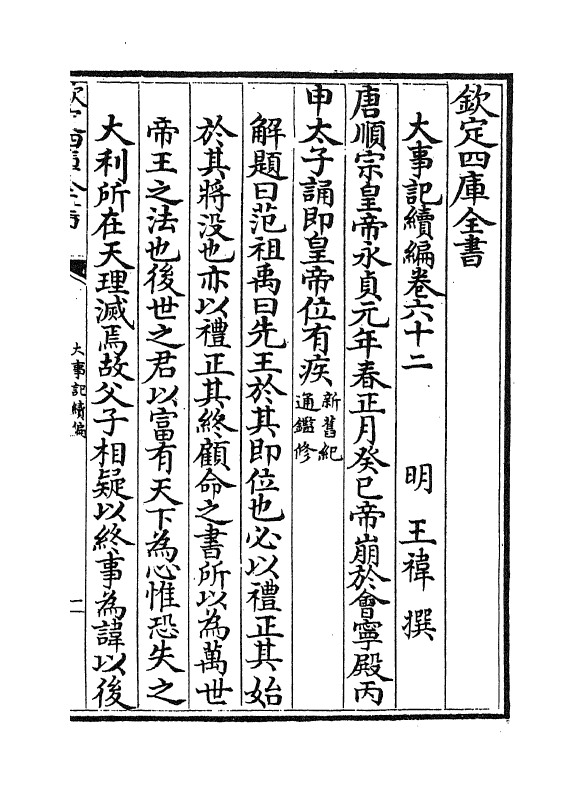 欽定四庫全書
大事記續編卷六十二　明　王禕　撰
唐順宗皇帝永貞元年春正月癸巳帝崩於會寧殿丙
申太子誦即皇帝位有疾新舊紀通鑑修
解題曰范祖禹曰先王於其即位也必以禮正其始
於其將没也亦以禮正其終顧命之書所以為萬世
帝王之法也後世之君以富有天下為心惟恐失之
大利所在天理滅焉故父子相疑以終事為諱以後
大事記續編